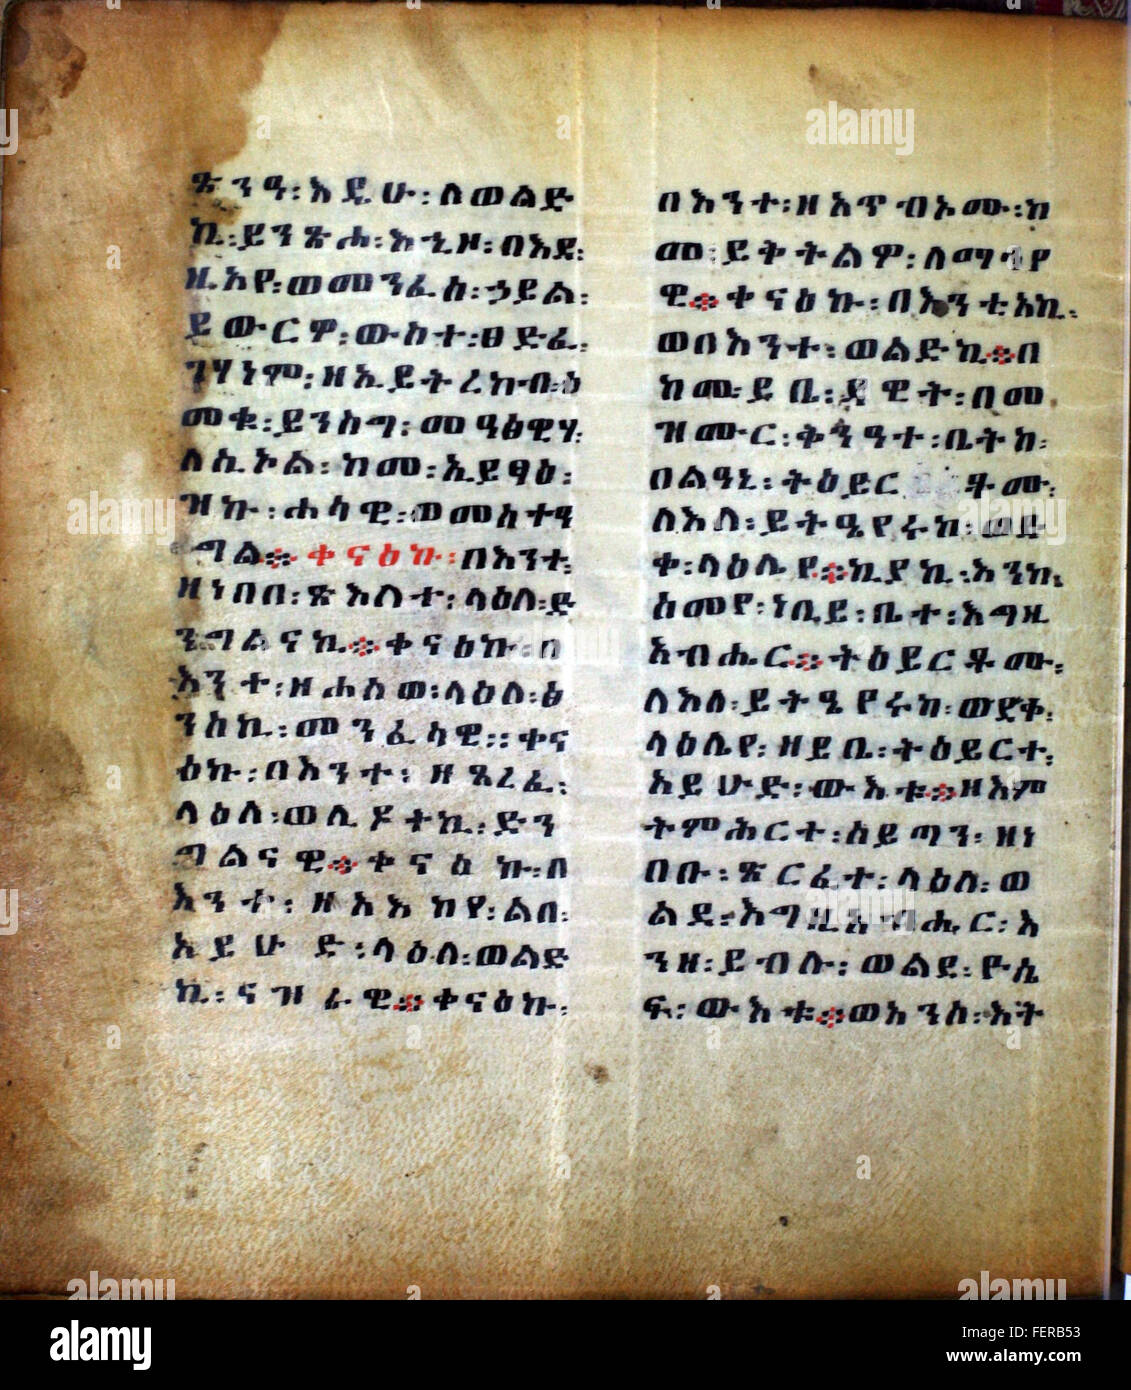 ጽንዓ፡አይሁ፡ለወልድ
ኪ፡ይንጽሐ፡እኂዞ፡በእደ፡
ዚአየ፡ወመንፈስ፡ኃይል፡
ይውርዎ፡ውስተ፡ፀድፈ፡
ገሃነም፡ዘኢይትረከብ፡ዕ
መቁ፡ይንስጣ፡መዓፅዊሃ፡
ለሲኦል፡ከመ፡ኢይፃዕ፡
ዝኩ፡ሐካዊ፡ወመስተዓ
ግል፨ቀናዕኩ፡በእንተ፡
ዘነበበ፡ጽእለተ፡ላዕለ፡ድ
ንግልናኪ፨ቀናዕኩ፡በ
እንተ፡ዘሐሰወ፡ላዕለ፡ፅ
ንስኪ፡መንፈሳዊ፡፡ቀና
ዕኩ፡በእንተ፡ዘጸረፈ፡
ላዕለ፡ወሊዶተኪ፡ድን
ግልናዊ፨ቀናዕኩ፡በ
እንተ፡ዘአእከየ፡ልበ፡
አይሁድ፡ላዕለ፡ወልድ
ኪ፡ናዝራዊ፨ቀናዕኩ፡
በእንተ፡ዘአጥብኦሙ፡ከ
መ፡ይቅትልዎ፡ለማኅየ
ዊ፨ቀናዕኩ፡በእንቲአኪ፡
ወበእንተ፡ወልድኪ፨በ
ከመ፡ይቤ፡ዳዊት፡በመ
ዝሙር፡ቅንዓተ፡ቤትከ፡
በልዓኒ፡ትዕይርቶሙ፡
ለእለ፡ይትዔየሩከ፡ወድ
ቀ፡ላዕሌየ፨ኪያኪ፡እንከ፡
ስመየ፡ነቢይ፡ቤተ፡እግዚ
አብሔር፨ትዕይርቶሙ፡
ለእለ፡ይትዔየሩከ፡ወድቀ፡
ላዕሌየ፡ዘይቤ፡ትዕይርተ፡
አይሁድ፡ውእቱ፨ዘእም
ትምሕርተ፡ሰይጣን፡ዘነ
በቡ፡ጽርፈተ፡ላዕለ፡ወ
ልደ፡እግዚአብሔር፡እ
ንዘ፡ይብሉ፡ወልደ፡ዮሴ
ፍ፡ውእቱ፨ወአንሰ፡እት
alamy
Image ID: FERB53
www.alamy.com